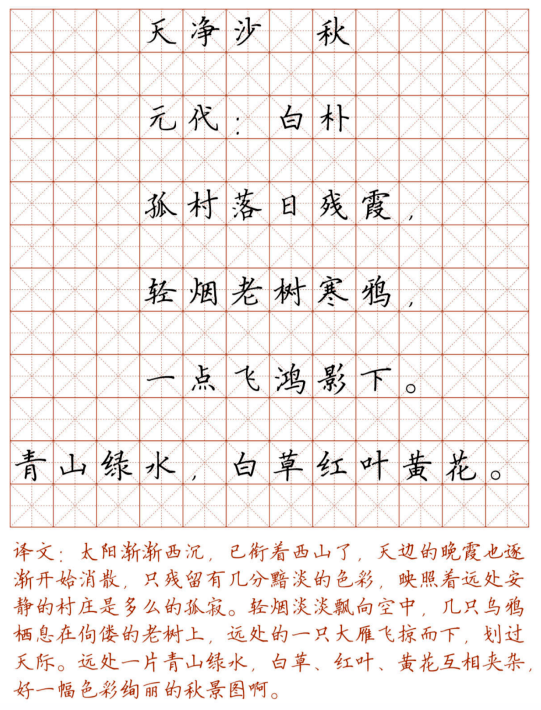 天净沙 秋
元代：白朴
孤村落日残霞，
轻烟老树寒鸦，
一点飞鸿影下。
青山绿水，白草红叶黄花。
译文：太阳渐渐西沉，已衔着西山了，天边的晚霞也逐
渐开始消散，只残留有几分黯淡的色彩，映照着远处安
静的村庄是多么的孤寂。轻烟淡淡飘向空中，几只乌鸦
栖息在佝偻的老树上，远处的一只大雁飞掠而下，划过
天际。远处一片青山绿水，白草、红叶、黄花互相夹杂，
好一幅色彩绚丽的秋景图啊。